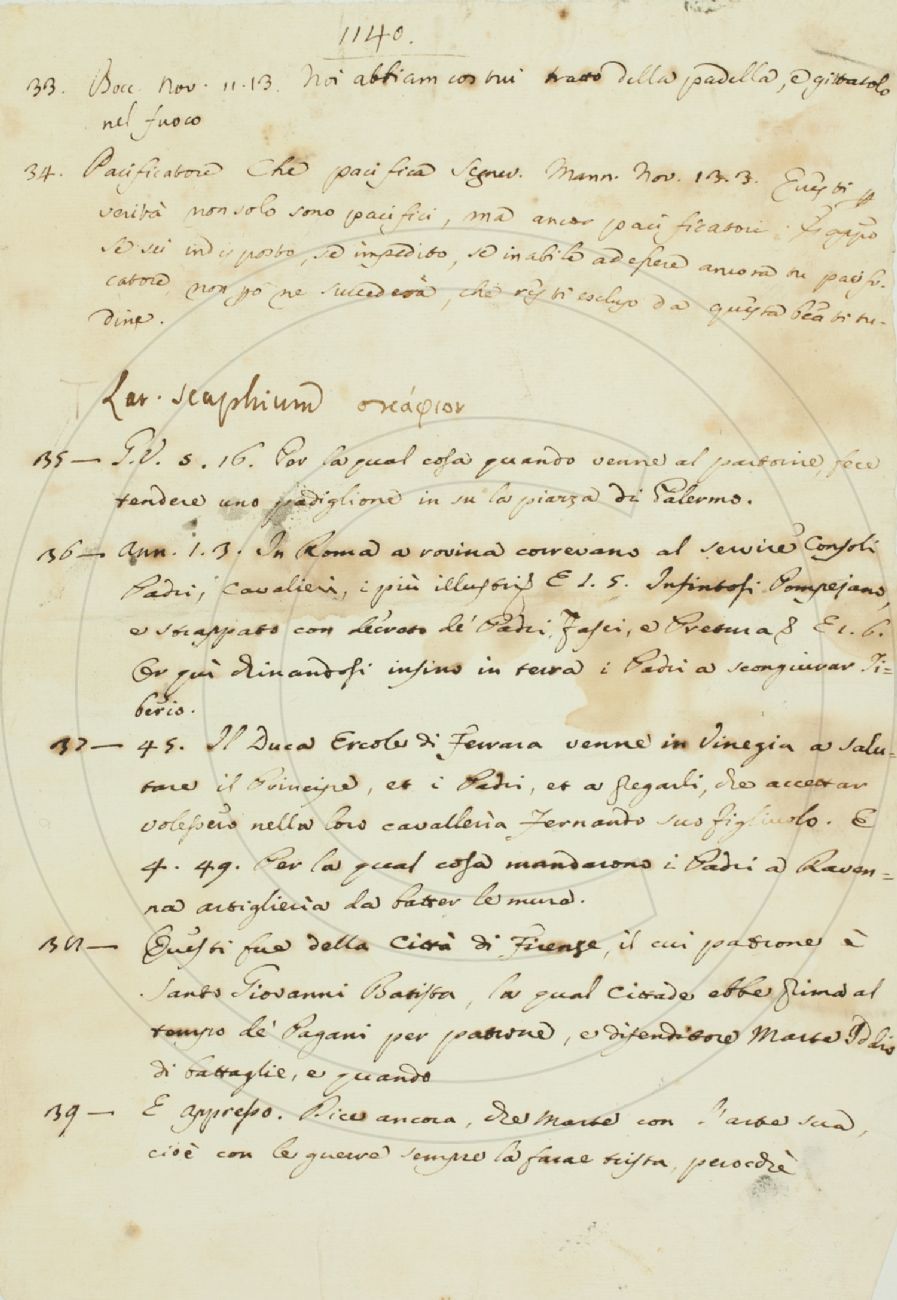 1140.
33. Bocc. Nov. 11.13. Noi abbiam costui tratto della padella, e gittatolo
nel fuoco
34. Pacificatore Che pacifica Segner. Mann. Nov. 13.3. Questi
verità non solo sono pacifici, ma ancor pacificatori.
se sei indisposto, se impedito, se inabile ad essere ancora tu pacifi-
catore, non ne succederà, che resti escluso da questa beatitu-
dine.
Lat. scaphium σκάφιον
35 — G.V. 5.16. Per la qual cosa quando venne al partorire, fece
tendere uno padiglione in su la piazza di Palermo.
36 — Ann. 1.3. In Roma a rovina correvano al servire Consoli
Padri, Cavalieri, i più illustri E 1.5. Infintosi Pompejano,
e strappato con decreto de' Padri, Fasci, e Pretura E 1.6.
Or qui chinandosi insino in terra i Padri a scongiurar Ti=
berio.
37 — 45. Il Duca Ercole di Ferrara venne in Vinegia a salu=
tare il Principe, et i Padri, et a pregarli, che accettar
volessero nella loro cavalleria Fernando suo figliuolo. E
4. 49. Per la qual cosa mandarono i Padri a Raven=
na artiglieria da batter le mura.
38 — Questi fue della Città di Firenze, il cui patrone è
Santo Giovanni Batista, la qual Cittade ebbe prima al
tempo de' Pagani per patrone, e difenditore Marte Iddio
di battaglie, e quando
39 — E appresso. Dice ancora, che Marte con l'arte sua,
cioè con le guerre sempre la farae trista, perocchè